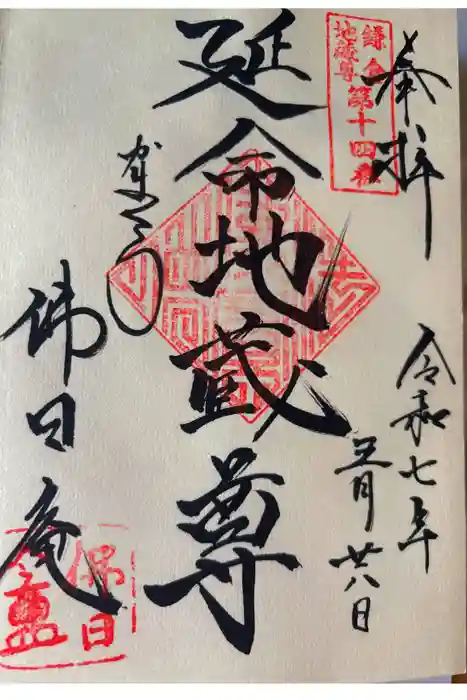 奉拝
鎌倉
地蔵尊
第十四番
令和七年
五月廿八日
延命地蔵尊
佛日庵
佛日